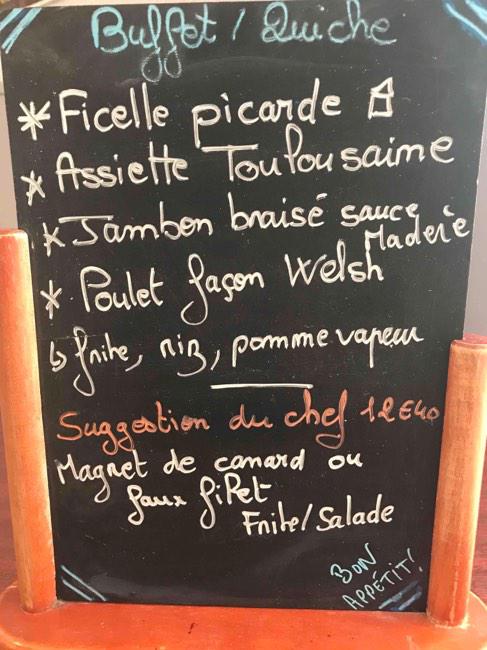 Buffet / Quiche
* Ficelle picarde
* Assiette Toulousaine
* Jambon braisé sauce Madère
* Poulet façon Welsh
↳ frite, riz, pomme vapeur
Suggestion du chef 12€40
Magret de canard ou
faux filet
Frite/Salade
BON
APPÉTIT!